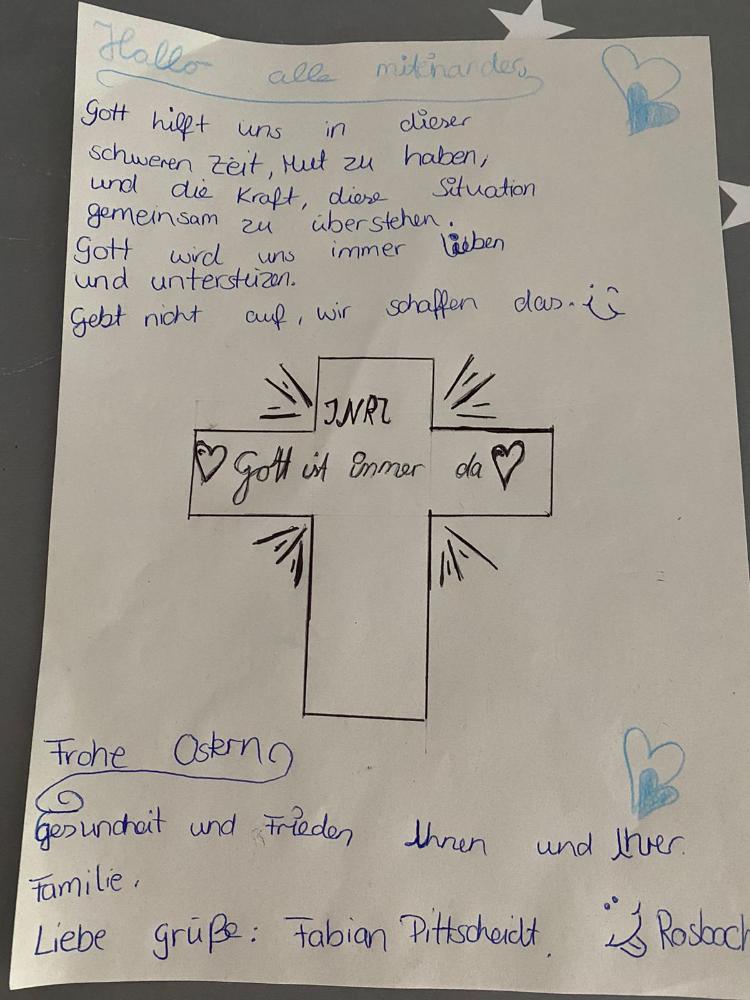 Hallo alle miteinander,
Gott hilft uns in dieser
schweren Zeit, Mut zu haben,
und die Kraft, diese Situation
gemeinsam zu überstehen.
Gott wird uns immer lieben
und unterstüzen.
Gebt nicht auf, wir schaffen das.
INRI
Gott ist immer da
Frohe Ostern
gesundheit und Frieden Ihnen und Ihrer
Familie.
Liebe grüße: Fabian Pittscheidt. Rosbach